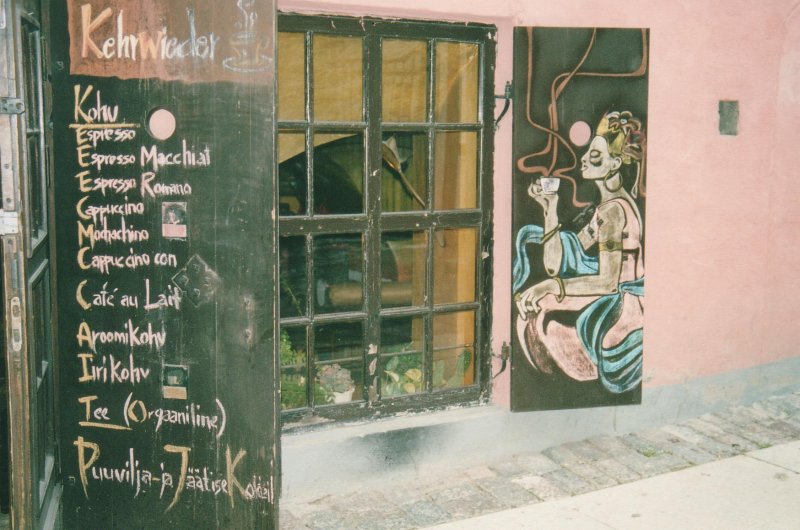 Kehrwieder
Kohv
Espresso
Espresso Macchiat
Espresso Romano
Cappuccino
Mochachino
Cappuccino con
Café au Lait
AroomiKohv
IiriKohv
Tee (Orgaaniline)
Puuvilja-ja JäätiseKokteil